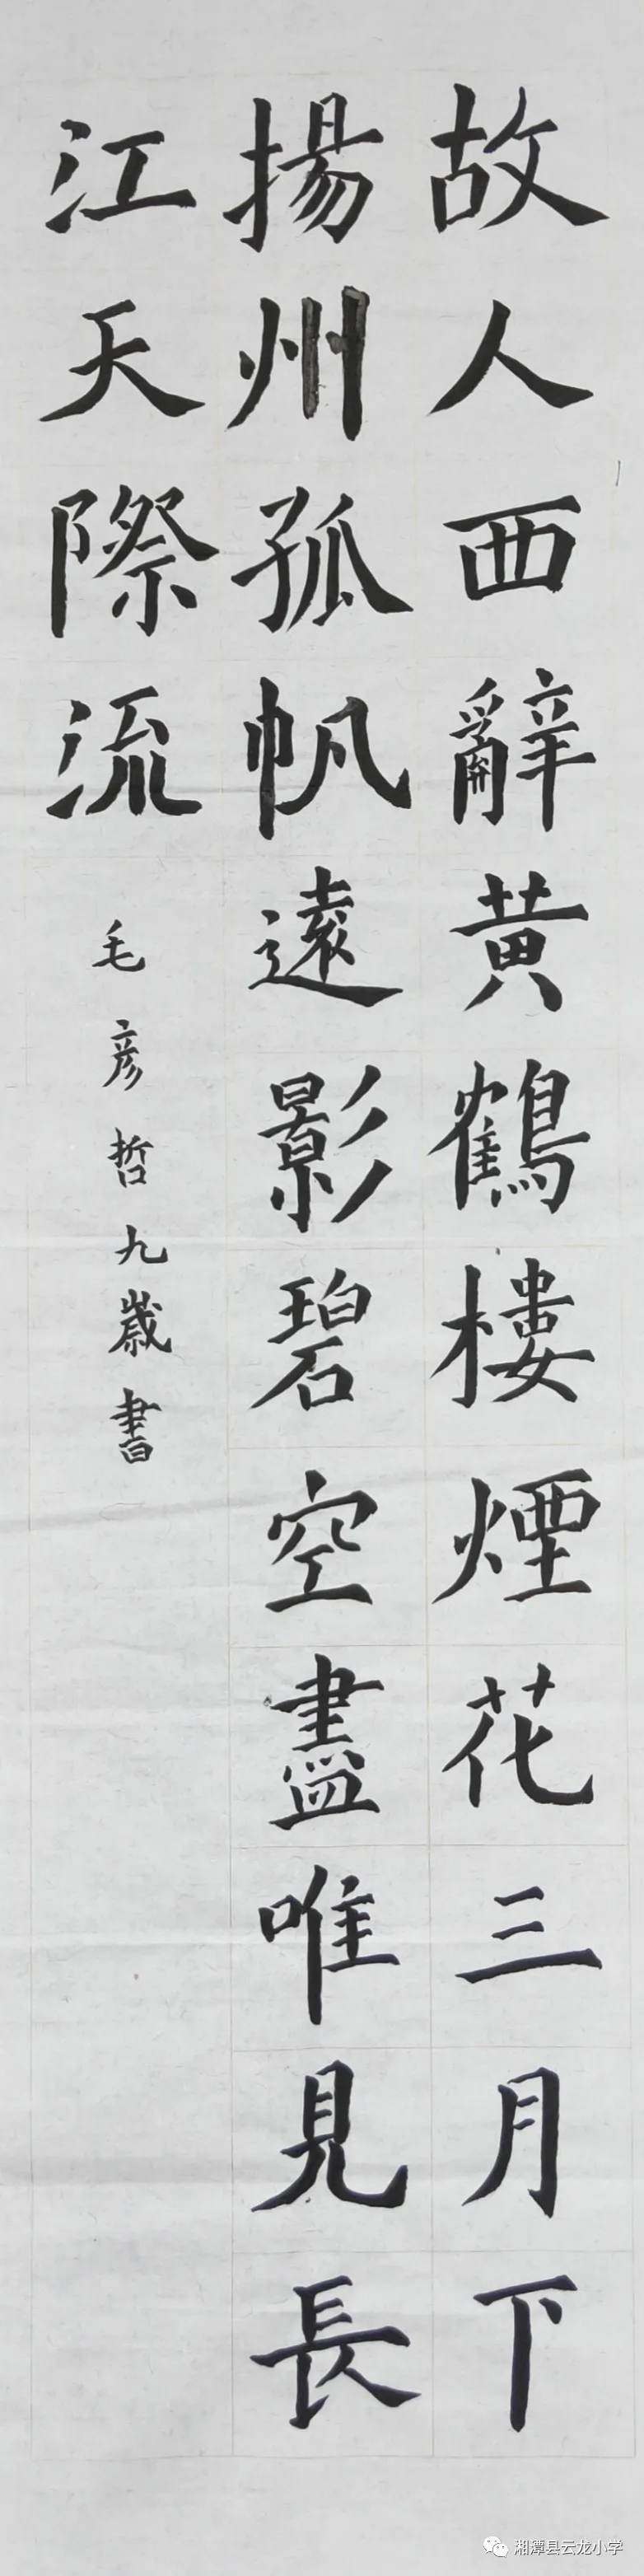 故人西辭黄鶴樓煙花三月下
揚州孤帆遠影碧空盡唯見長
江天際流
毛彦哲九歲書
湘潭县云龙小学